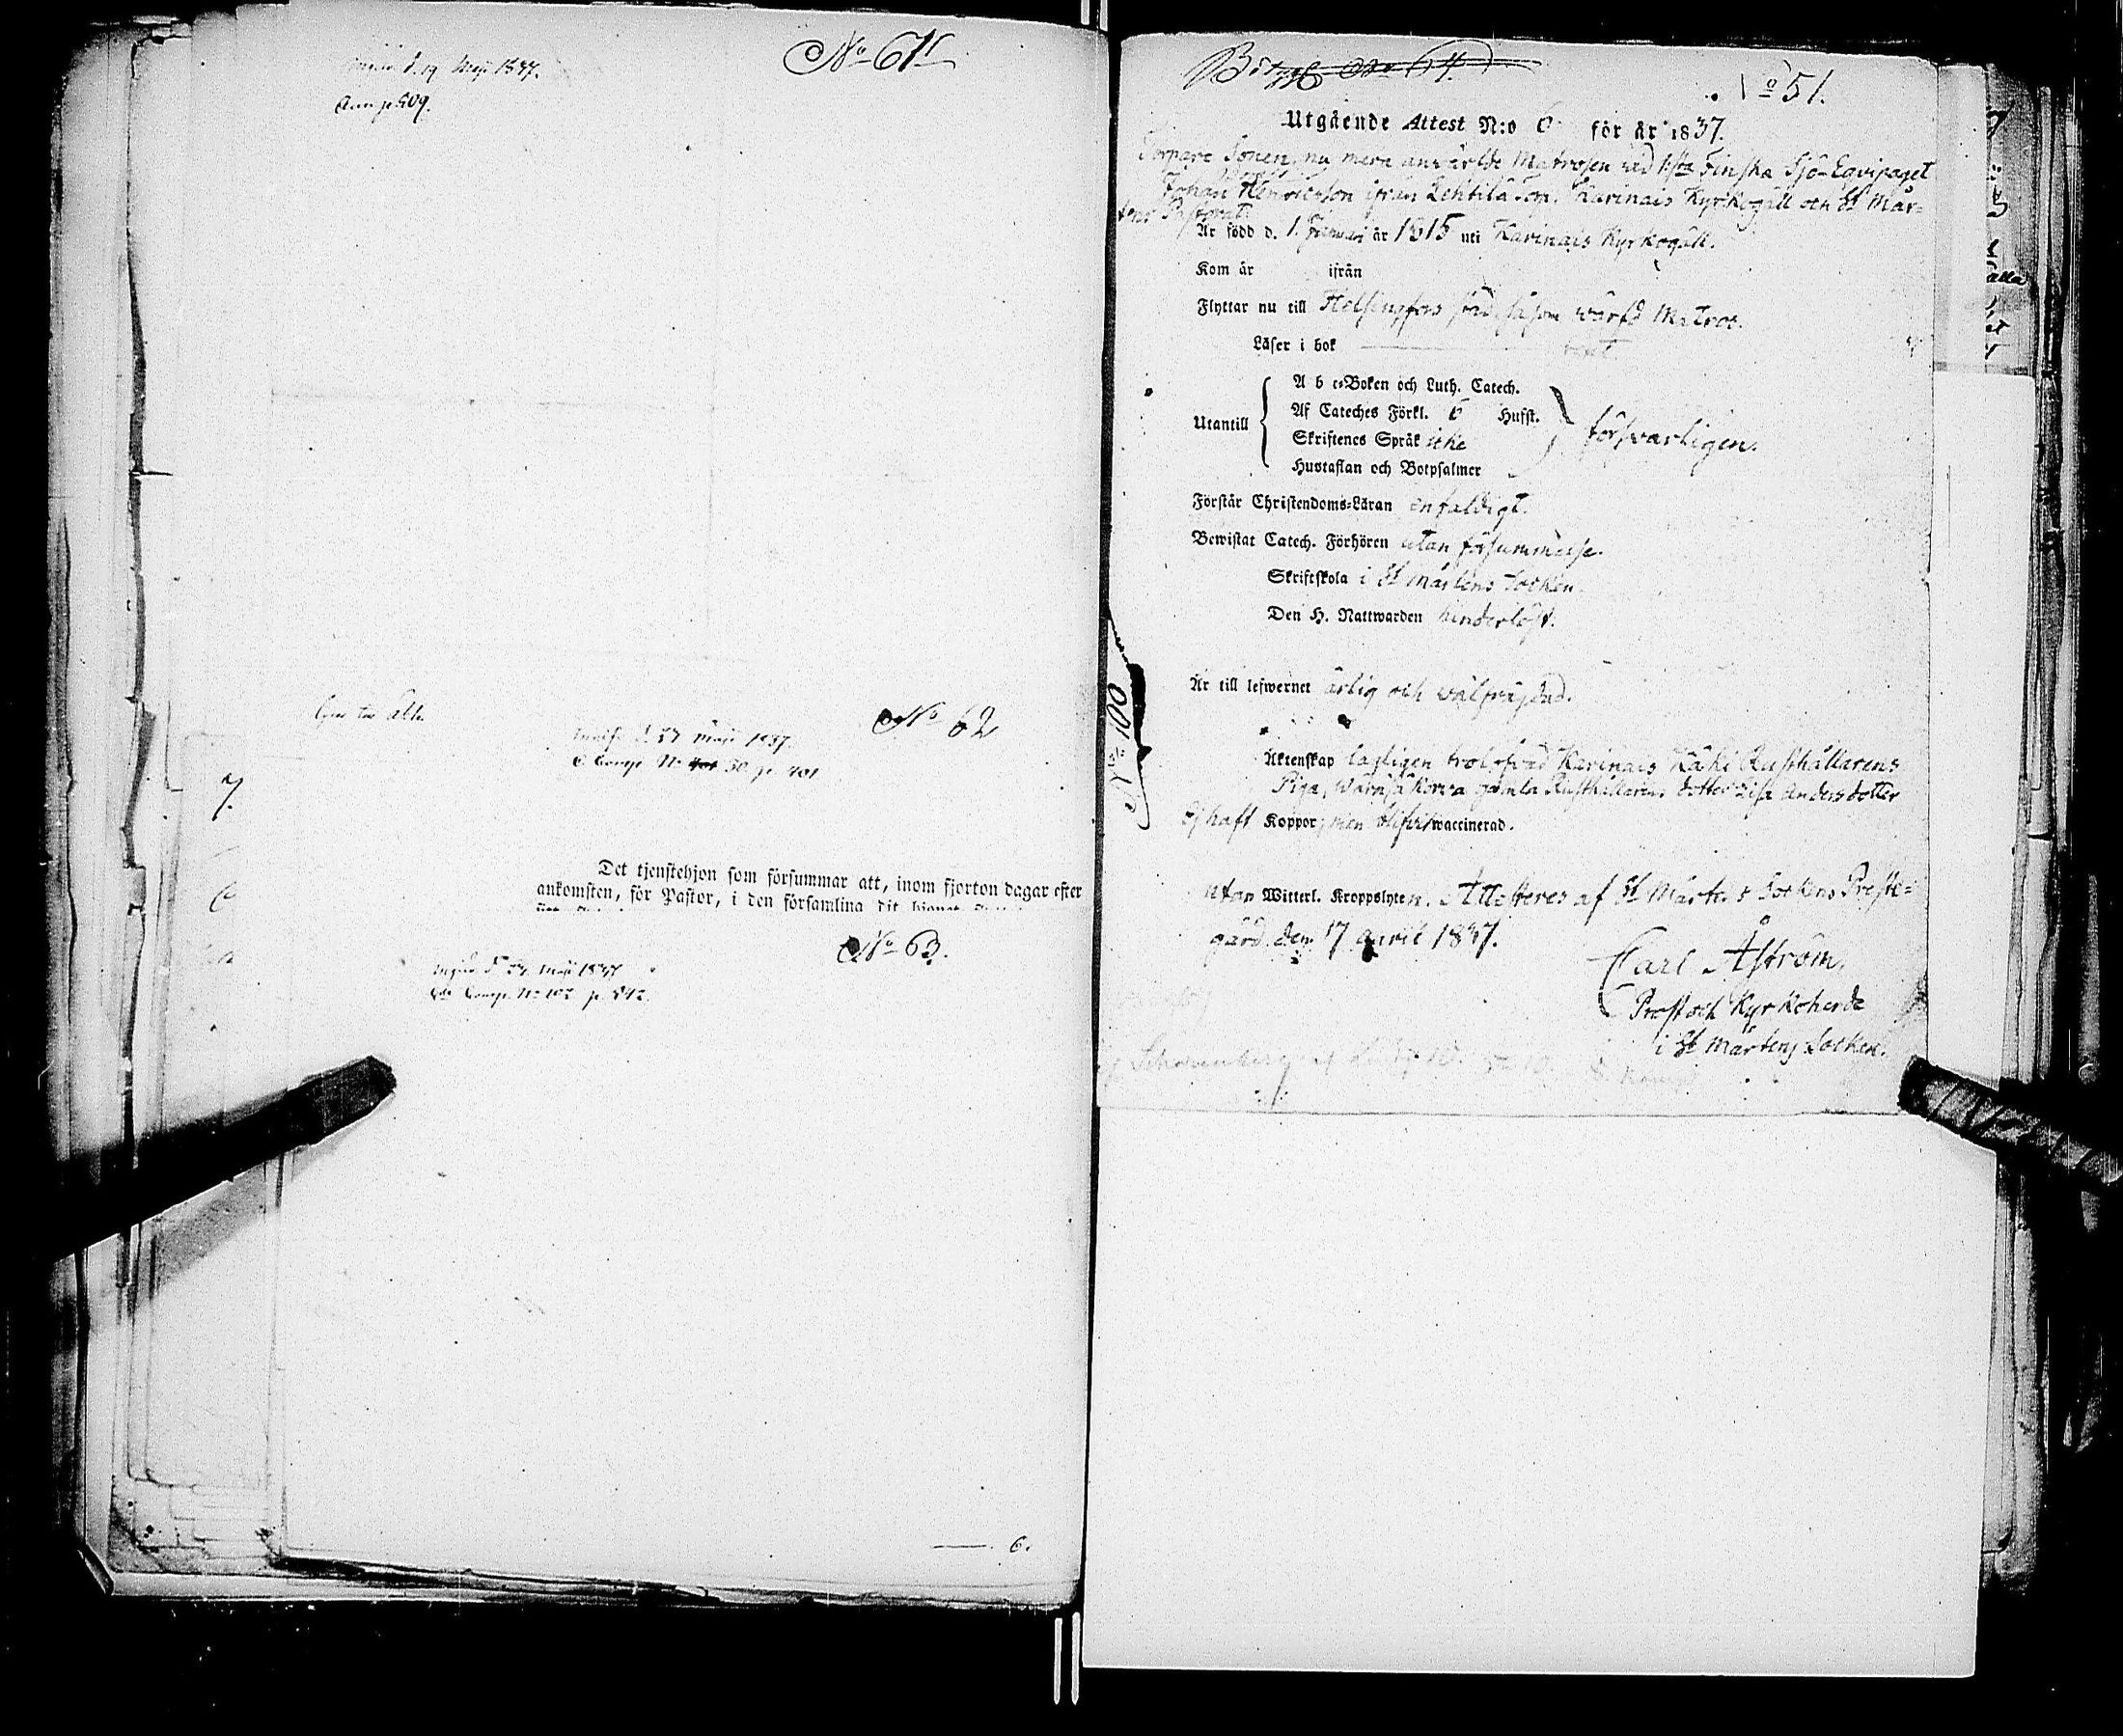 No 61
d. 19 Maji 1837.
p. 509.
No 62
d. 27 Maji 1837.
No 50 p. 401
7.
Det tjenstehjon som försummar att, inom fjorton dagar efter
ankomsten, för Pastor, i den församling dit
No 63.
d. 27 Maji 1837
Comp. No 102 p. 542.
6.
No 64.
No 51.
Utgående Attest N:o 6 för år 1837.
Torpare Sonen, nu mera anvärfde Matrosen vid 1:sta Finska Sjö-Eqvipaget
Johan Henricsson ifrån Lehtilä Torp, Karinais Kyrkogäll och St Mår-
tens Pastorat
Är född d. 1 Januari år 1815 uti Karinais Kyrkogäll.
Kom år ifrån
Flyttar nu till Helsingfors stad såsom wärfd Matros.
Läser i bok
Utantill
A b c-Boken och Luth. Catech.
Af Cateches Förkl. 6 Hufst.
Skriftenes Språk icke
Hustaflan och Botpsalmer
försvarligen.
Förstår Christendoms-Läran enfaldigt.
Bewistat Catech. Förhören utan försummelse.
Skriftskola i St Mårtens Socken.
Den H. Nattwarden hinderlöst.
Är till lefwernet ärlig och wälfrägdad.
No 100
Äktenskap lagligen trolofvad Karinais Käki Rusthållarens
Piga, gamla Rusthållarens dotter Lisa Andersdotter
Ej haft Koppor, men blifvit waccinerad.
utan Witterl. Kroppslyten. Attesteres af St Mårtens Sockens Preste-
gård den 17 April 1837.
Carl Åström,
Prost och Kyrkoherde
i St Mårtens Socken.